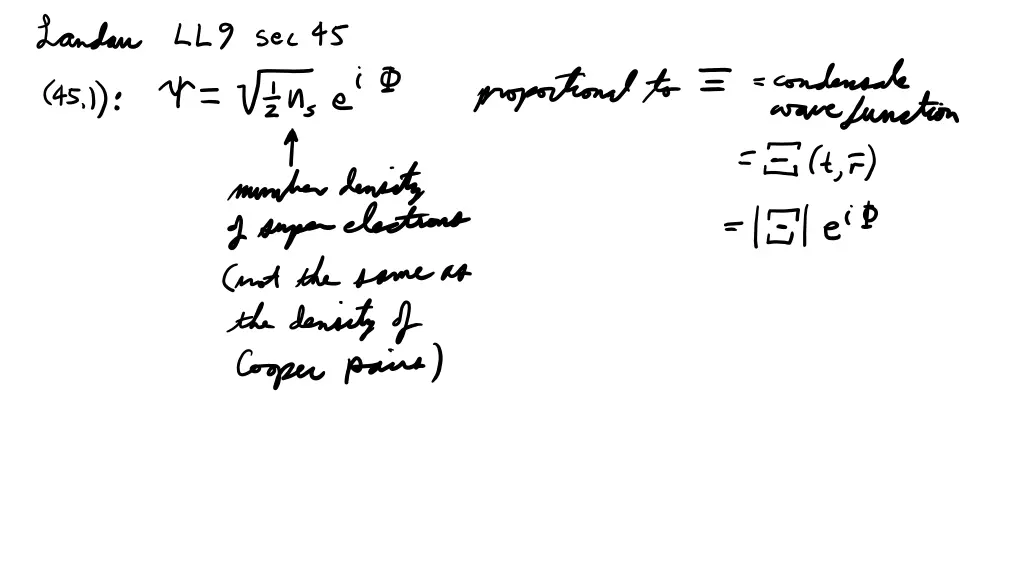 Landau LL9 sec 45
(45.1): Ψ = √(½ n_s) e^{iΦ} proportional to Ξ = condensate
wave function
= Ξ (t, r̄)
= |Ξ| e^{iΦ}
↑
number density
of super electrons
(not the same as
the density of
Cooper pairs)